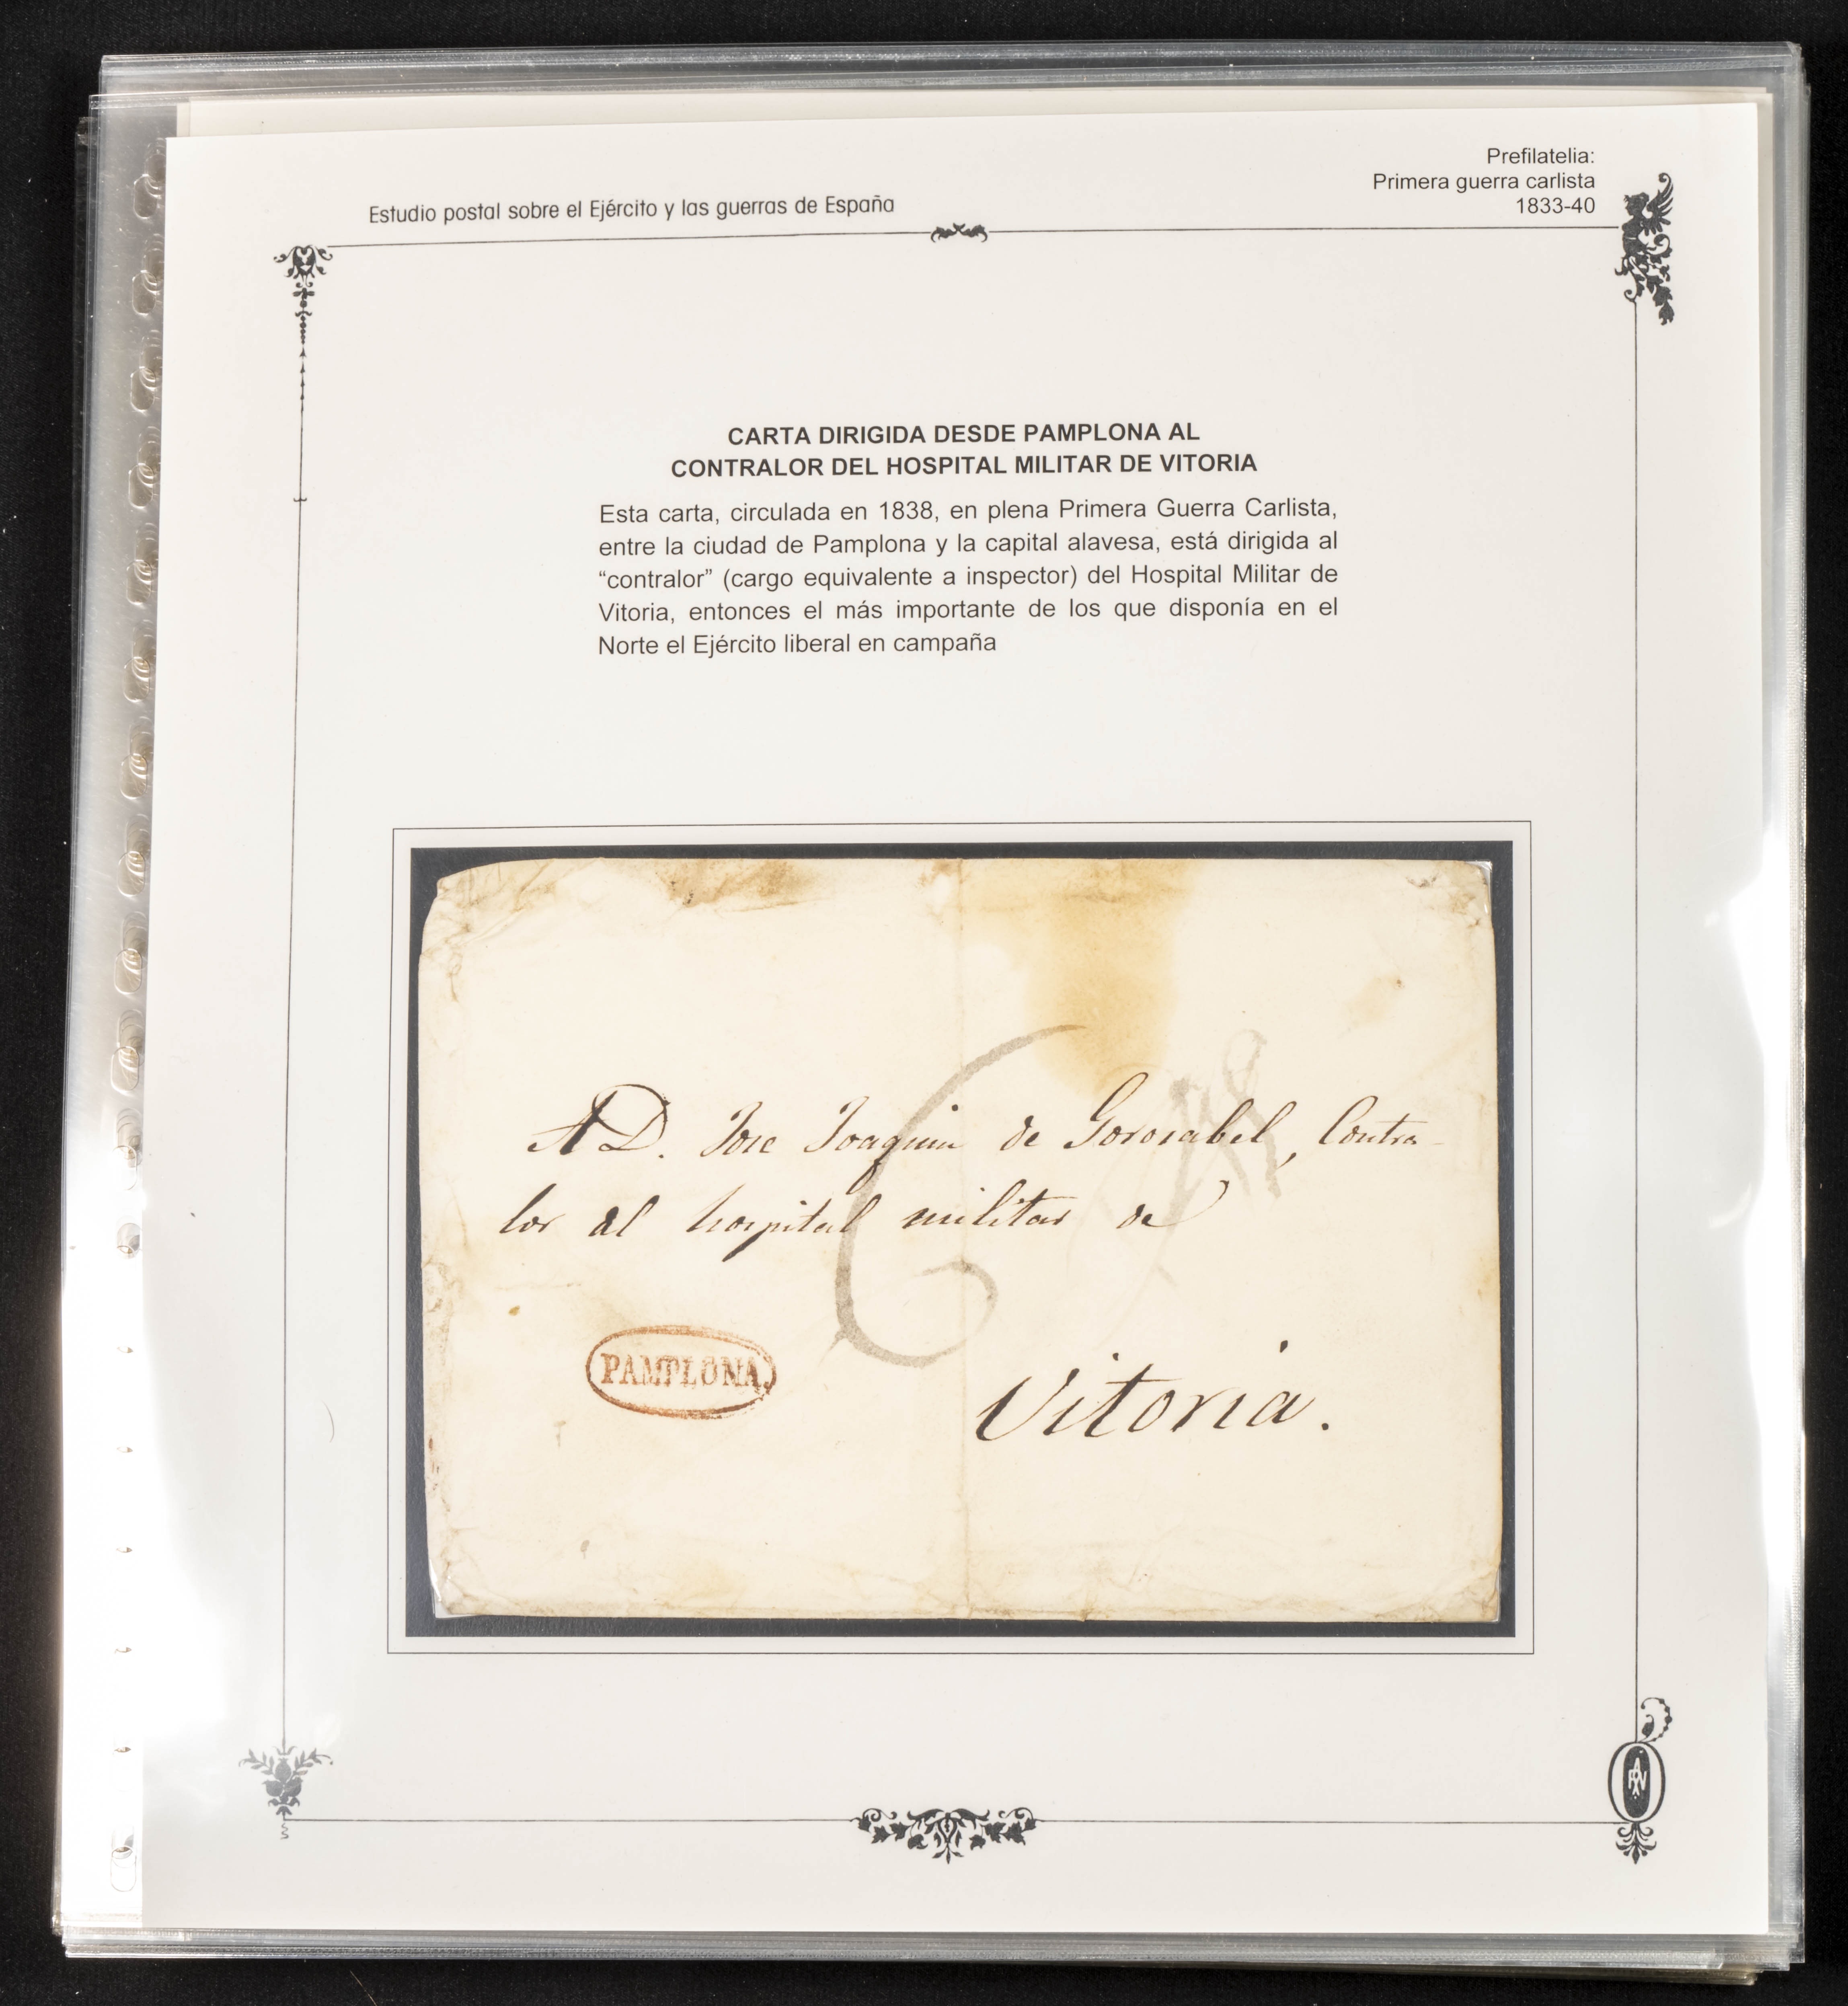 Prefilatelia:
Primera guerra carlista
1833-40
Estudio postal sobre el Ejército y las guerras de España
CARTA DIRIGIDA DESDE PAMPLONA AL
CONTRALOR DEL HOSPITAL MILITAR DE VITORIA
Esta carta, circulada en 1838, en plena Primera Guerra Carlista,
entre la ciudad de Pamplona y la capital alavesa, está dirigida al
“contralor” (cargo equivalente a inspector) del Hospital Militar de
Vitoria, entonces el más importante de los que disponía en el
Norte el Ejército liberal en campaña
A D. Jose Joaquin de Gorosabel, Contra-
lor al hospital militar de
PAMPLONA
Vitoria.